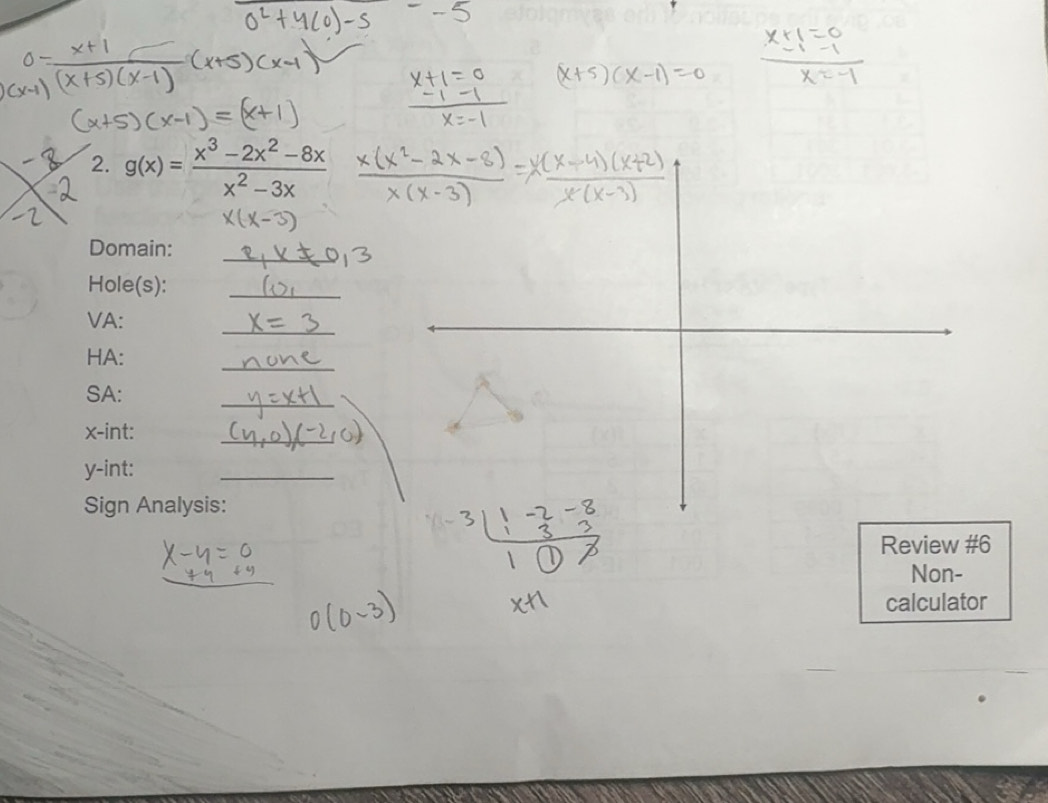 0² + 4(0) - 5 = -5
0 = x+1 / (x+5)(x-1) (x+5)(x-1)
(x+5)(x-1) = (x+1)
x+1 = 0
-1 -1
x = -1
(x+5)(x-1) = 0
x+1 = 0
-1 -1
x = -1
-8
-2
-2
2. g(x) = x³ - 2x² - 8x / x² - 3x
x(x² - 2x - 8) / x(x-3) = x(x-4)(x+2) / x(x-3)
x(x-3)
Domain: x ≠ 0, 3
Hole(s): (0,
VA: x = 3
HA: none
SA: y = x+1
x-int: (4,0)(-2,0)
y-int:
Sign Analysis:
x - 4 = 0
+4 +4
0(0-3)
3 1 -2 -8
3 3
1 1
x+1
Review #6
Non-
calculator